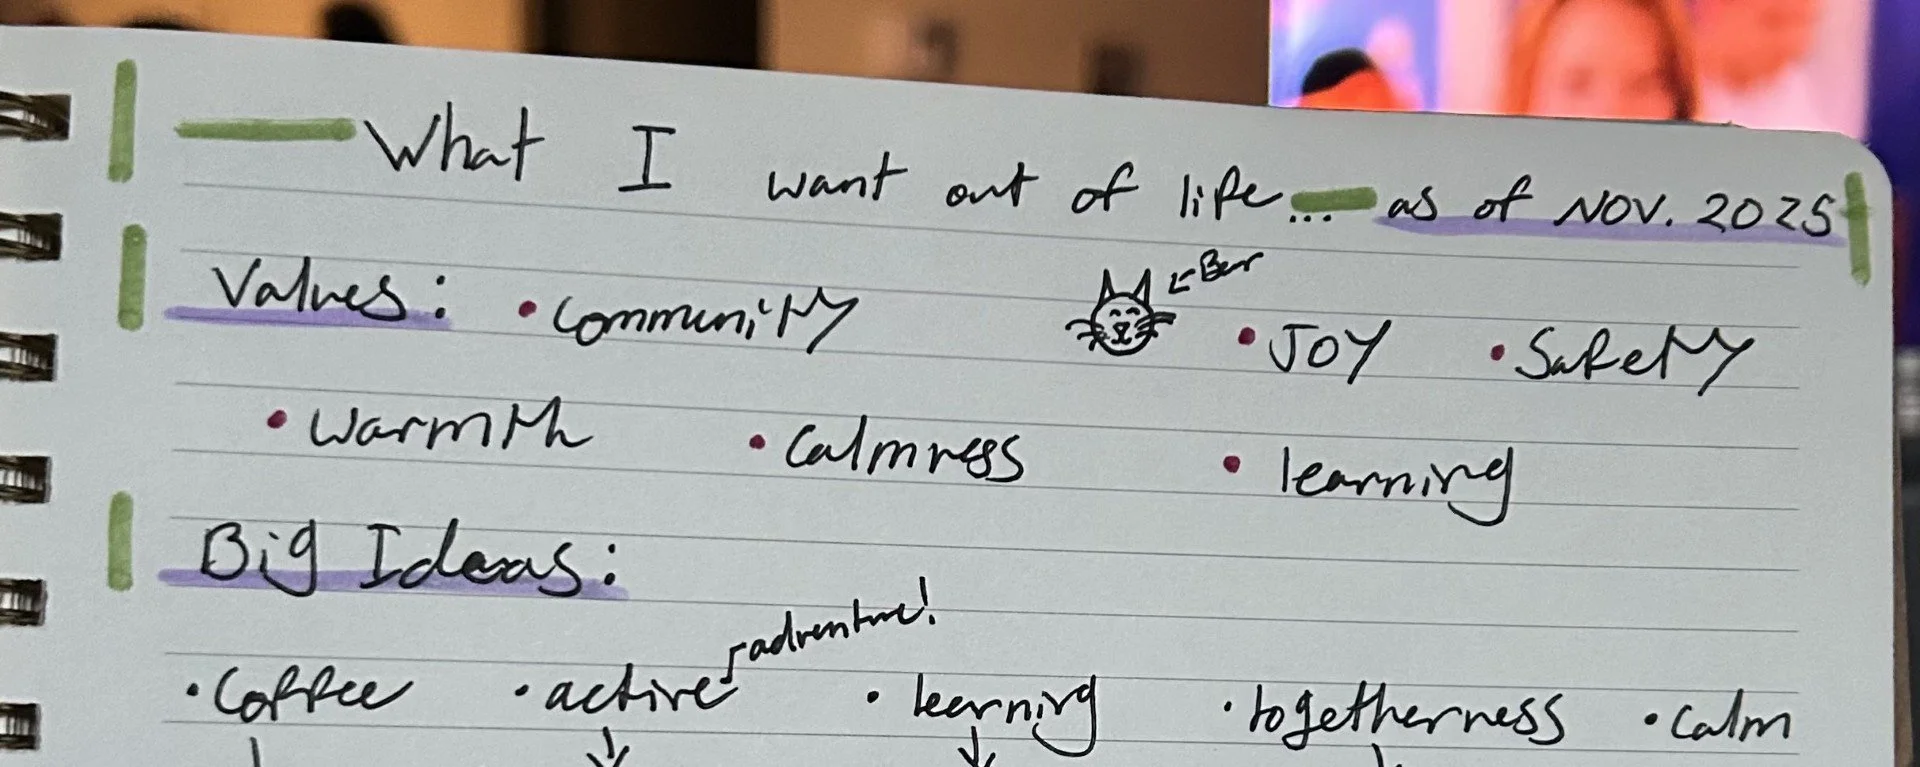 What I want out of life... as of NOV. 2025
Values: • Community • JOY • Safety
← Bear
• Warmth • Calmness • learning
Big Ideas:
adventure!
• Coffee • active • learning • togetherness • Calm